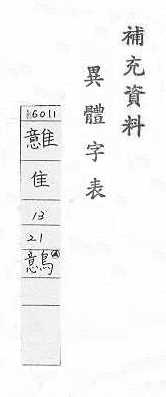 補充資料
異體字表
6011
䧹
隹
13
21
鷾